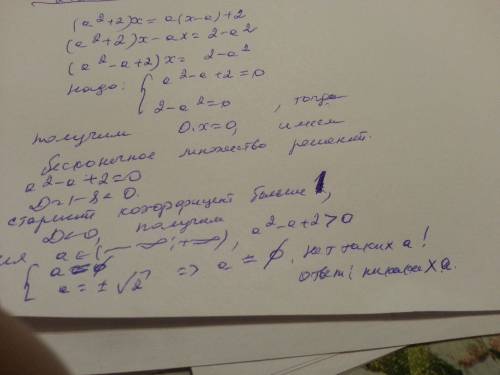 (a²+2)x = a(x-a)+2
(a²+2)x - ax = 2-a²
(a²-a+2)x = 2-a²
надо: { a²-a+2=0
2-a²=0 , тогда
получим 0·x=0, имеем
бесконечное множество решений.
a²-a+2=0
D=1-8<0.
старший коэффициент больше 1,
D<0, получим
a∈(-∞;+∞), a²-a+2>0
{ a=∅
a=±√2 => a=∅. нет таких a!
ответ: никаких a.